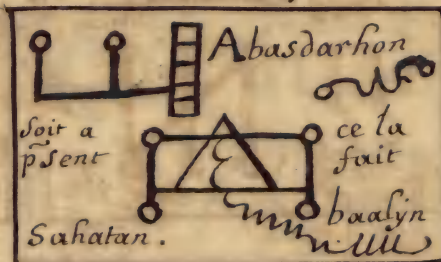 Abasdarhon
soit a
p̃sent
ce la
fait
Sahatan.
baalyn